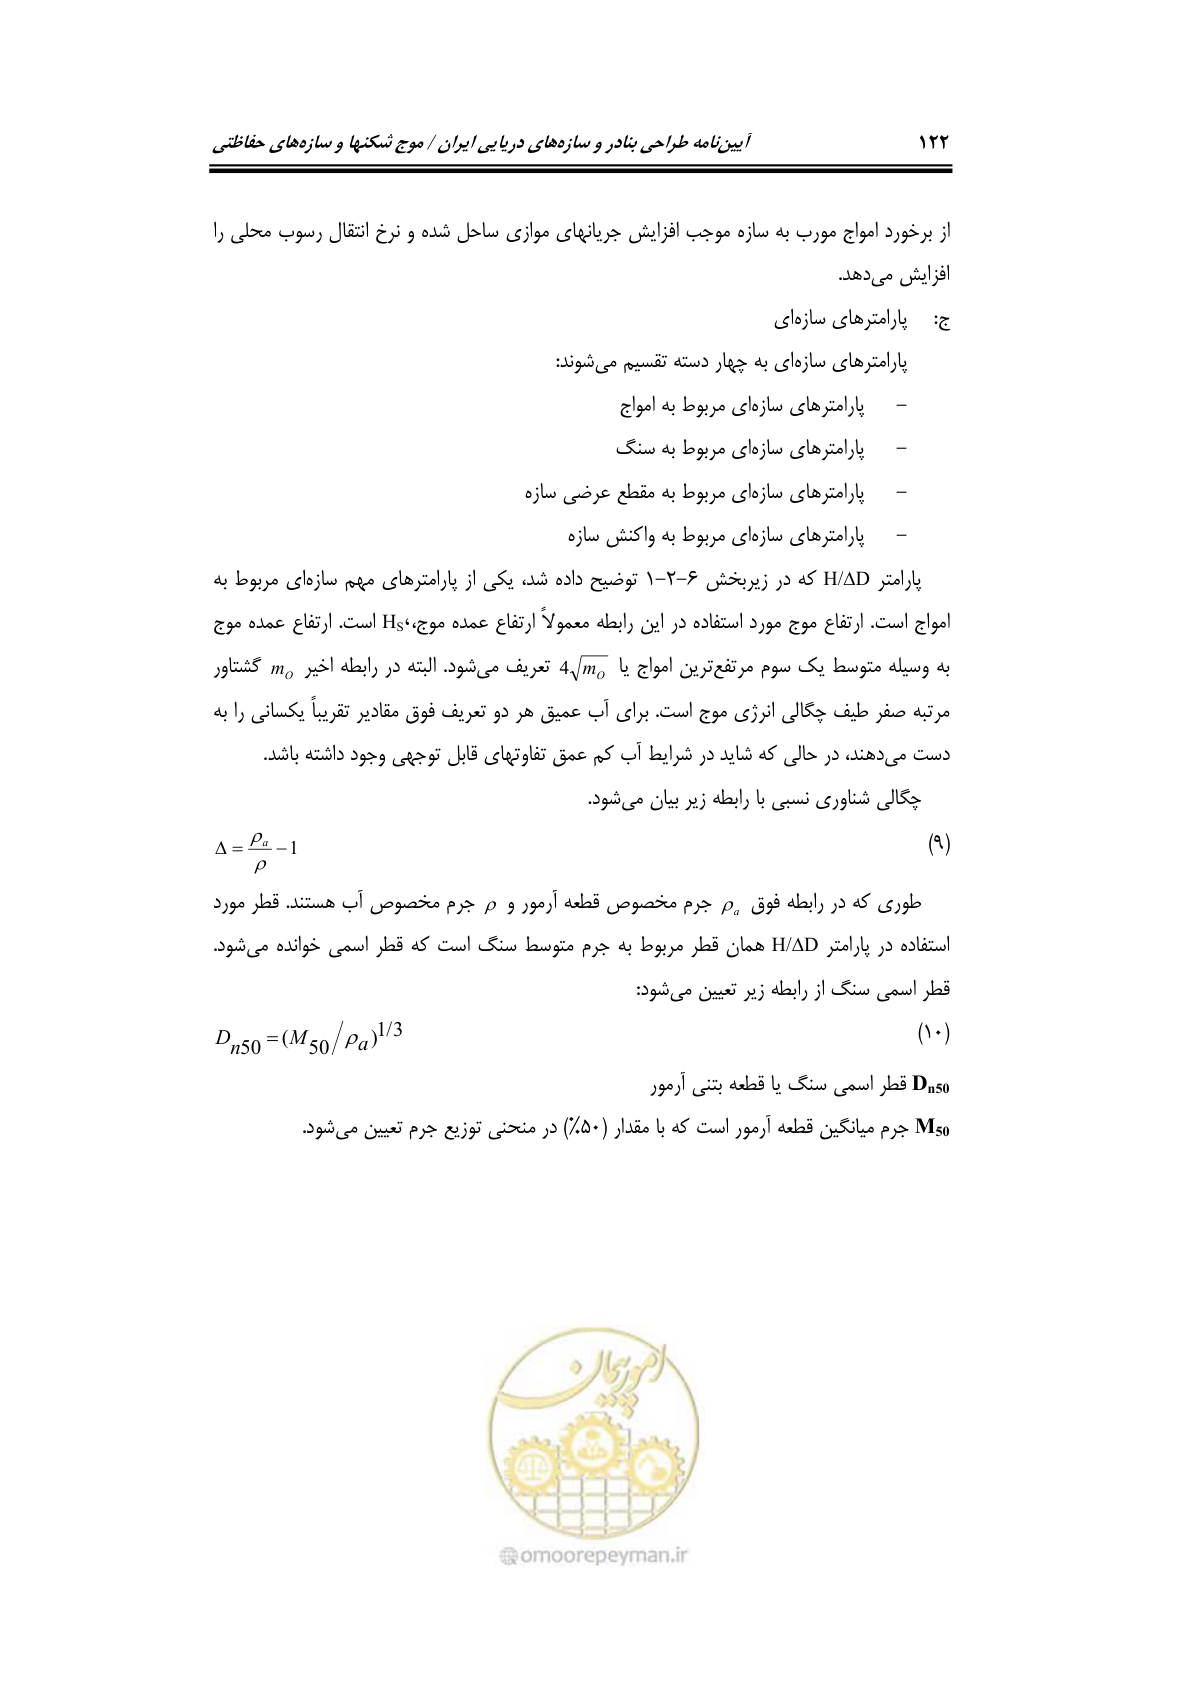 ۱۲۲ آیین‌نامه طراحی بنادر و سازه‌های دریایی ایران / موج شکنها و سازه‌های حفاظتی
از برخورد امواج مورب به سازه موجب افزایش جریانهای موازی ساحل شده و نرخ انتقال رسوب محلی را
افزایش می‌دهد.
ج: پارامترهای سازه‌ای
پارامترهای سازه‌ای به چهار دسته تقسیم می‌شوند:
– پارامترهای سازه‌ای مربوط به امواج
– پارامترهای سازه‌ای مربوط به سنگ
– پارامترهای سازه‌ای مربوط به مقطع عرضی سازه
– پارامترهای سازه‌ای مربوط به واکنش سازه
پارامتر H/ΔD که در زیربخش ۶-۲-۱ توضیح داده شد، یکی از پارامترهای مهم سازه‌ای مربوط به
امواج است. ارتفاع موج مورد استفاده در این رابطه معمولاً ارتفاع عمده موج،،HS است. ارتفاع عمده موج
به وسیله متوسط یک سوم مرتفع‌ترین امواج یا 4√mO تعریف می‌شود. البته در رابطه اخیر mO گشتاور
مرتبه صفر طیف چگالی انرژی موج است. برای آب عمیق هر دو تعریف فوق مقادیر تقریباً یکسانی را به
دست می‌دهند، در حالی که شاید در شرایط آب کم عمق تفاوتهای قابل توجهی وجود داشته باشد.
چگالی شناوری نسبی با رابطه زیر بیان می‌شود.
(۹) Δ = ρa/ρ − 1
طوری که در رابطه فوق ρa جرم مخصوص قطعه آرمور و ρ جرم مخصوص آب هستند. قطر مورد
استفاده در پارامتر H/ΔD همان قطر مربوط به جرم متوسط سنگ است که قطر اسمی خوانده می‌شود.
قطر اسمی سنگ از رابطه زیر تعیین می‌شود:
(۱۰) Dn50 = (M50/ρa)1/3
Dn50 قطر اسمی سنگ یا قطعه بتنی آرمور
M50 جرم میانگین قطعه آرمور است که با مقدار (۵۰٪) در منحنی توزیع جرم تعیین می‌شود.
امور پیمان
@omoorepeyman.ir